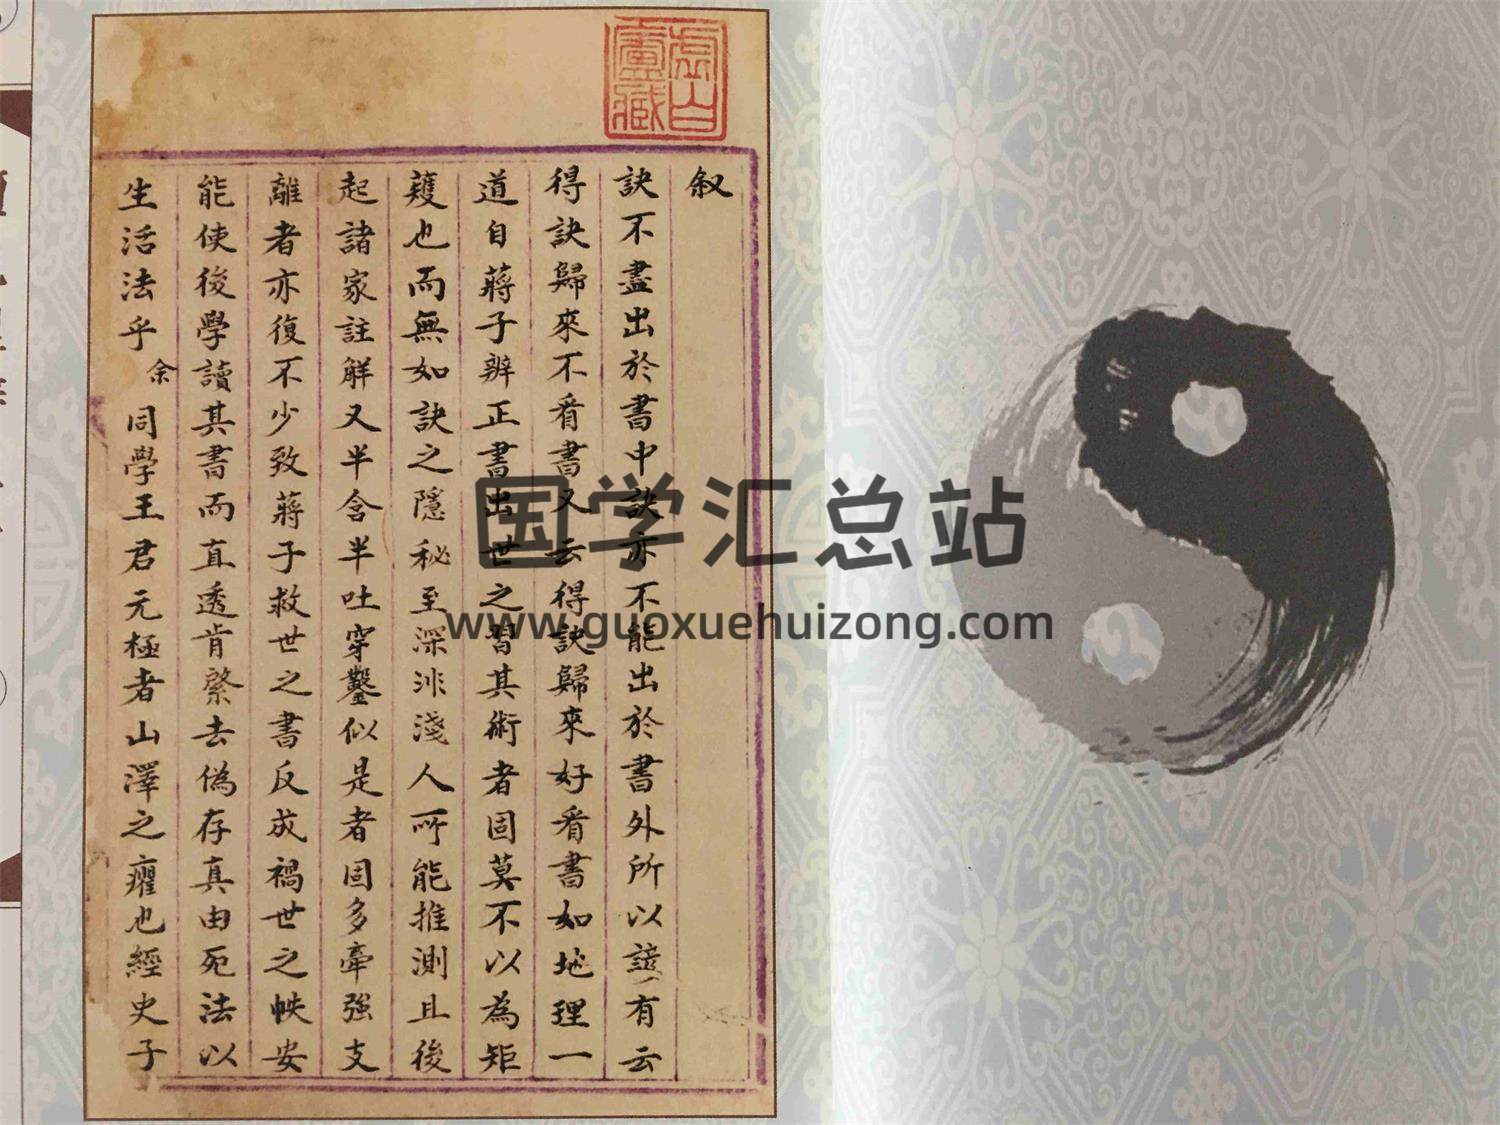 叙
訣不盡出於書中訣亦不能出於書外所以諺有云
得訣歸來不看書又云得訣歸來好看書如地理一
道自蔣子辨正書出世之習其術者固莫不以為矩
蒦也而無如訣之隱秘至深非淺人所能推測且後
起諸家註解又半含半吐穿鑿似是者固多牽強支
離者亦復不少致蔣子救世之書反成禍世之帙安
能使後學讀其書而直透肯綮去偽存真由死法以
生活法乎余同學王君元極者山澤之癯也經史子
虛白廬藏
国学汇总站
www.guoxuehuizong.com